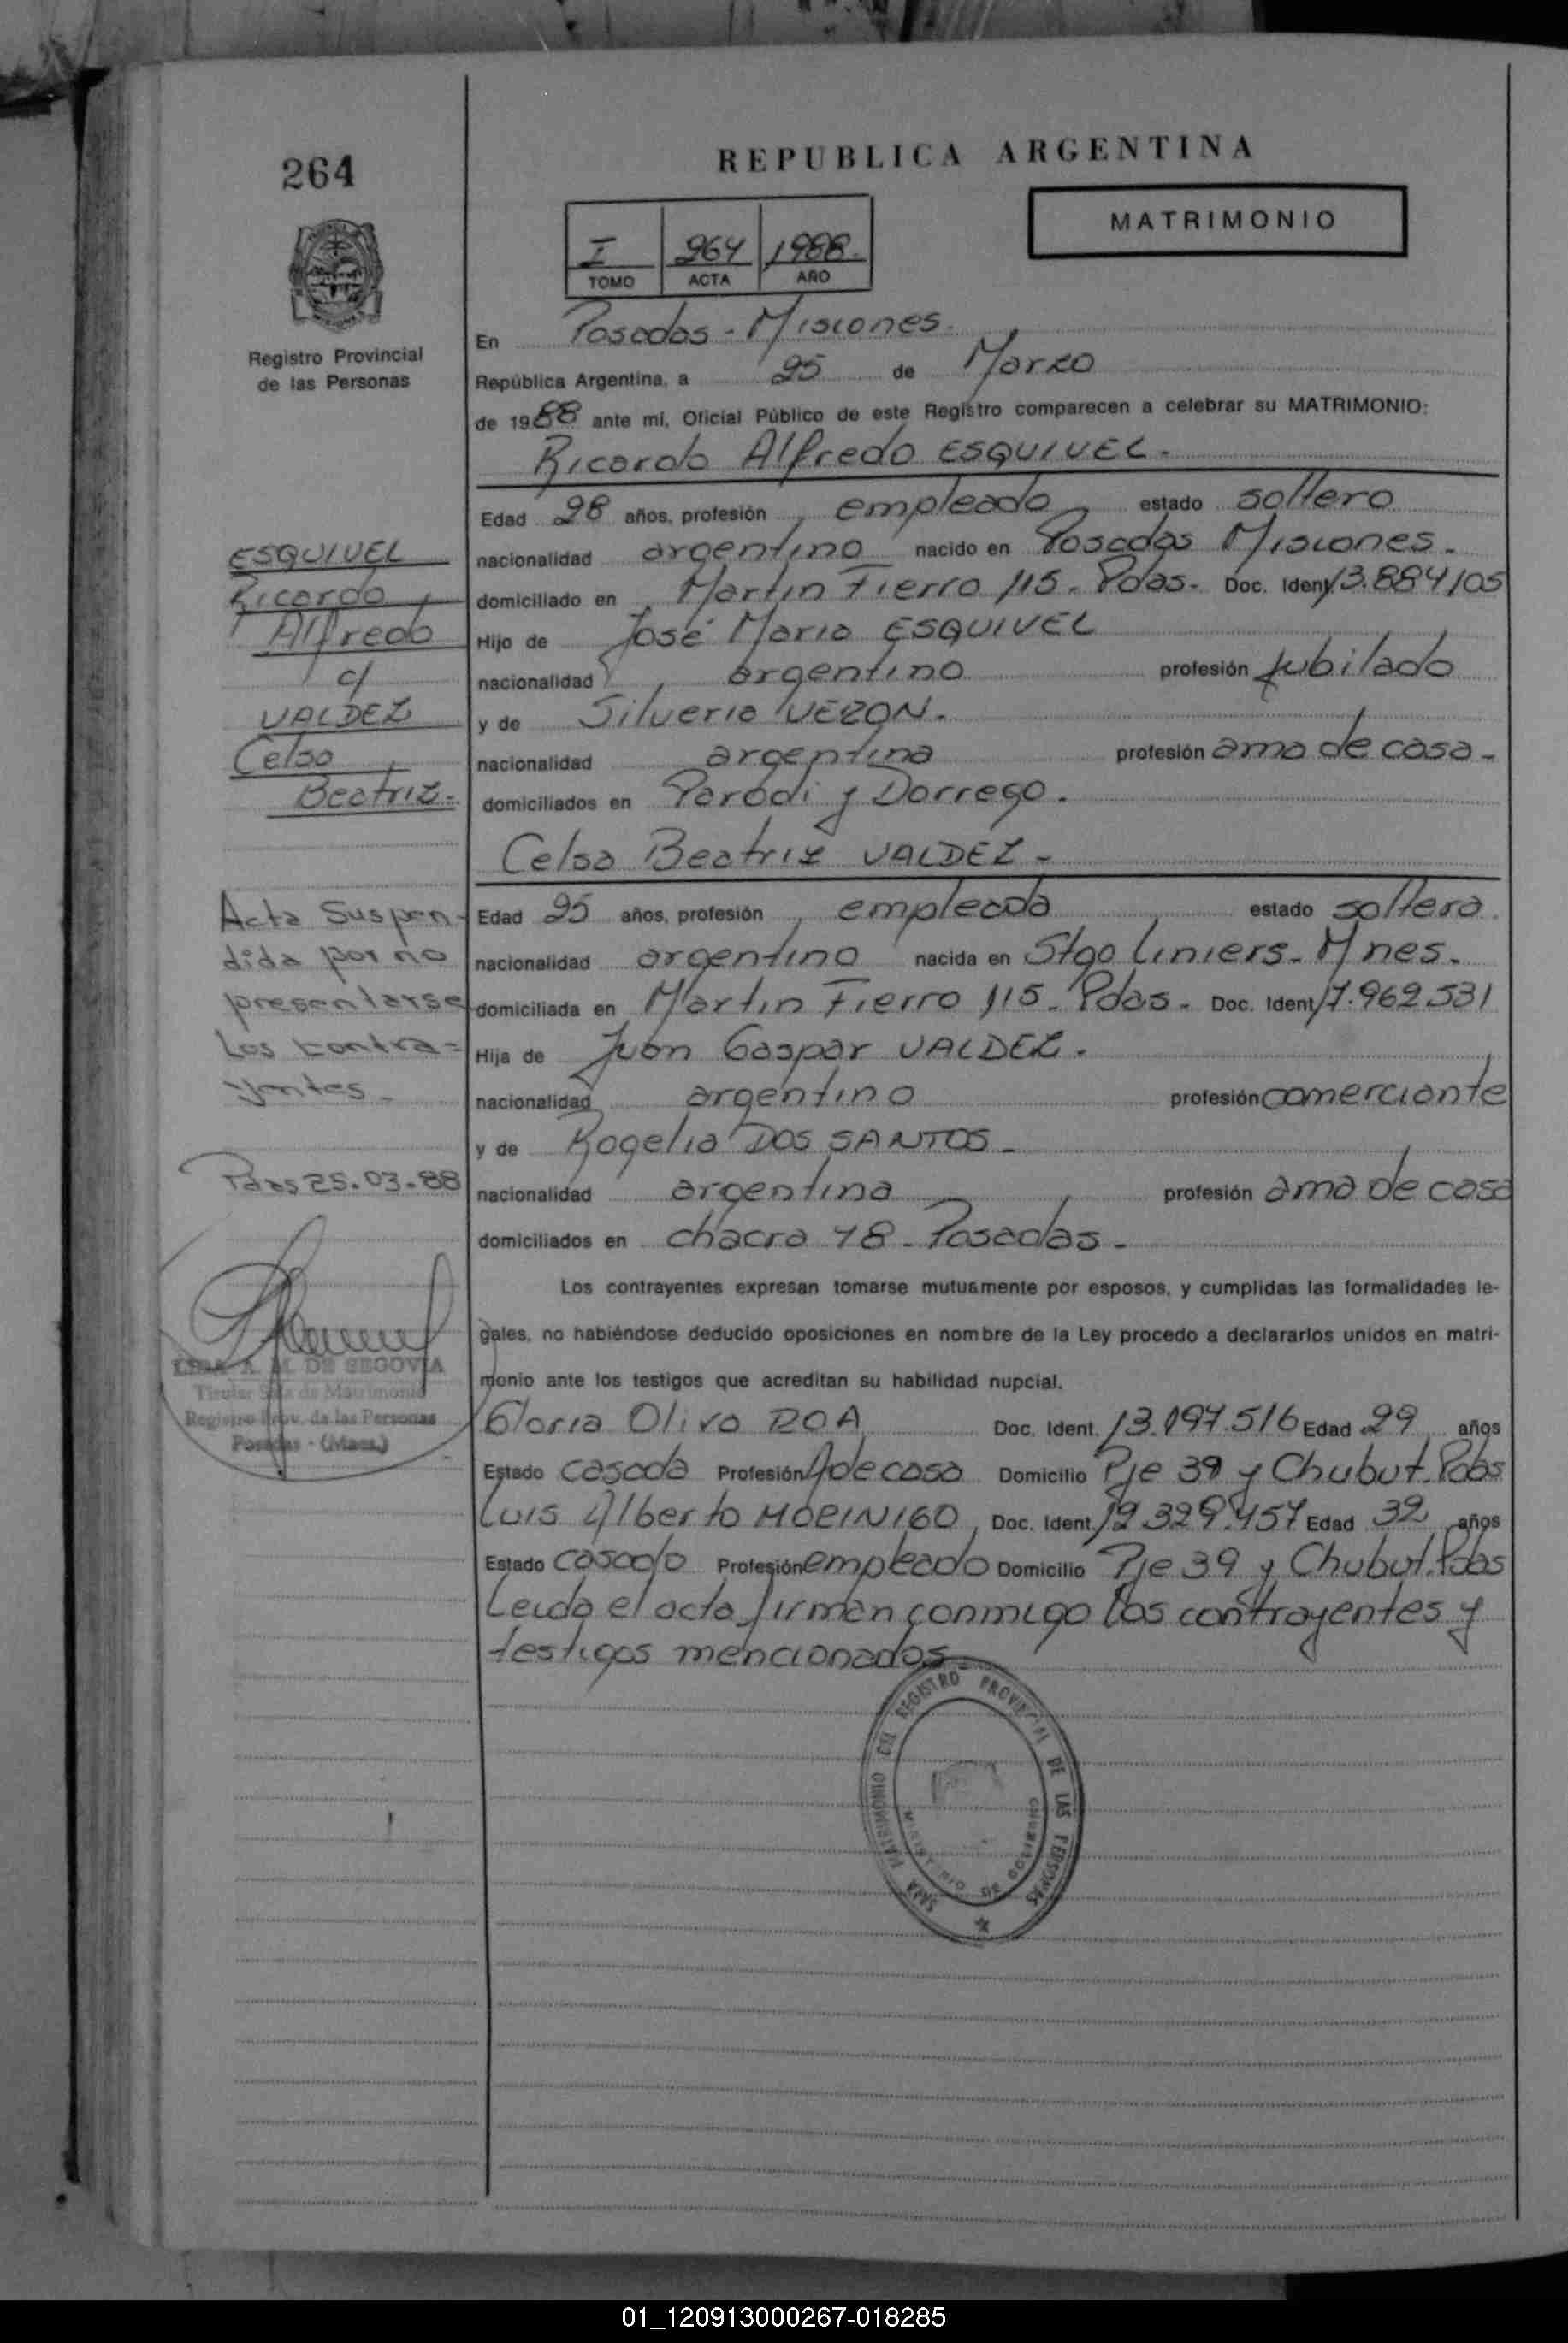 264
REPUBLICA ARGENTINA
MATRIMONIO
I 264 1988.
TOMO ACTA AÑO
Registro Provincial
de las Personas
En Posadas - Misiones.
República Argentina, a 25 de Marzo
de 1988 ante mi, Oficial Público de este Registro comparecen a celebrar su MATRIMONIO:
Ricardo Alfredo ESQUIVEL.
Edad 28 años, profesión empleado estado soltero
nacionalidad argentino nacido en Posadas Misiones.
domiciliado en Martin Fierro 115. Pdas. Doc. Ident. 13.884105
Hijo de José Maria ESQUIVEL
nacionalidad argentino profesión jubilado
y de Silveria VERON.
nacionalidad argentina profesión ama de casa.
domiciliados en Parodi y Dorrego.
Celsa Beatriz VALDEZ.
Edad 25 años, profesión empleada estado soltera.
nacionalidad argentina nacida en Stgo Liniers. Mnes.
domiciliada en Martin Fierro 115. Pdas. Doc. Ident. 17.962.531
Hija de Juan Gaspar VALDEZ.
nacionalidad argentino profesión comerciante
y de Rogelia DOS SANTOS.
nacionalidad argentina profesión ama de casa
domiciliados en chacra 48. Posadas.
Los contrayentes expresan tomarse mutuamente por esposos, y cumplidas las formalidades le-
gales, no habiéndose deducido oposiciones en nombre de la Ley procedo a declararlos unidos en matri-
monio ante los testigos que acreditan su habilidad nupcial.
Gloria Oliva ROA Doc. Ident. 13.197.516 Edad 29 años
Estado casada Profesión A de casa Domicilio Pje 39 y Chubut. Pdas
Luis Alberto MORINIGO, Doc. Ident. 12.329.457 Edad 32 años
Estado casado Profesión empleado Domicilio Pje 39 y Chubut. Pdas
Leida el acta firman conmigo los contrayentes y
testigos mencionados
ESQUIVEL
Ricardo
Alfredo
c/
VALDEZ
Celsa
Beatriz.
Acta Suspen-
dida por no
presentarse
los contra=
yentes.
Pdas 25.03.88
LIDIA A. M. DE SEGOVIA
Titular Sala de Matrimonio
Registro Prov. de las Personas
Posadas - (Mnes.)
SALA MATRIMONIO DEL REGISTRO PROVINCIAL DE LAS PERSONAS
MINISTERIO DE GOBIERNO
01_120913000267-018285